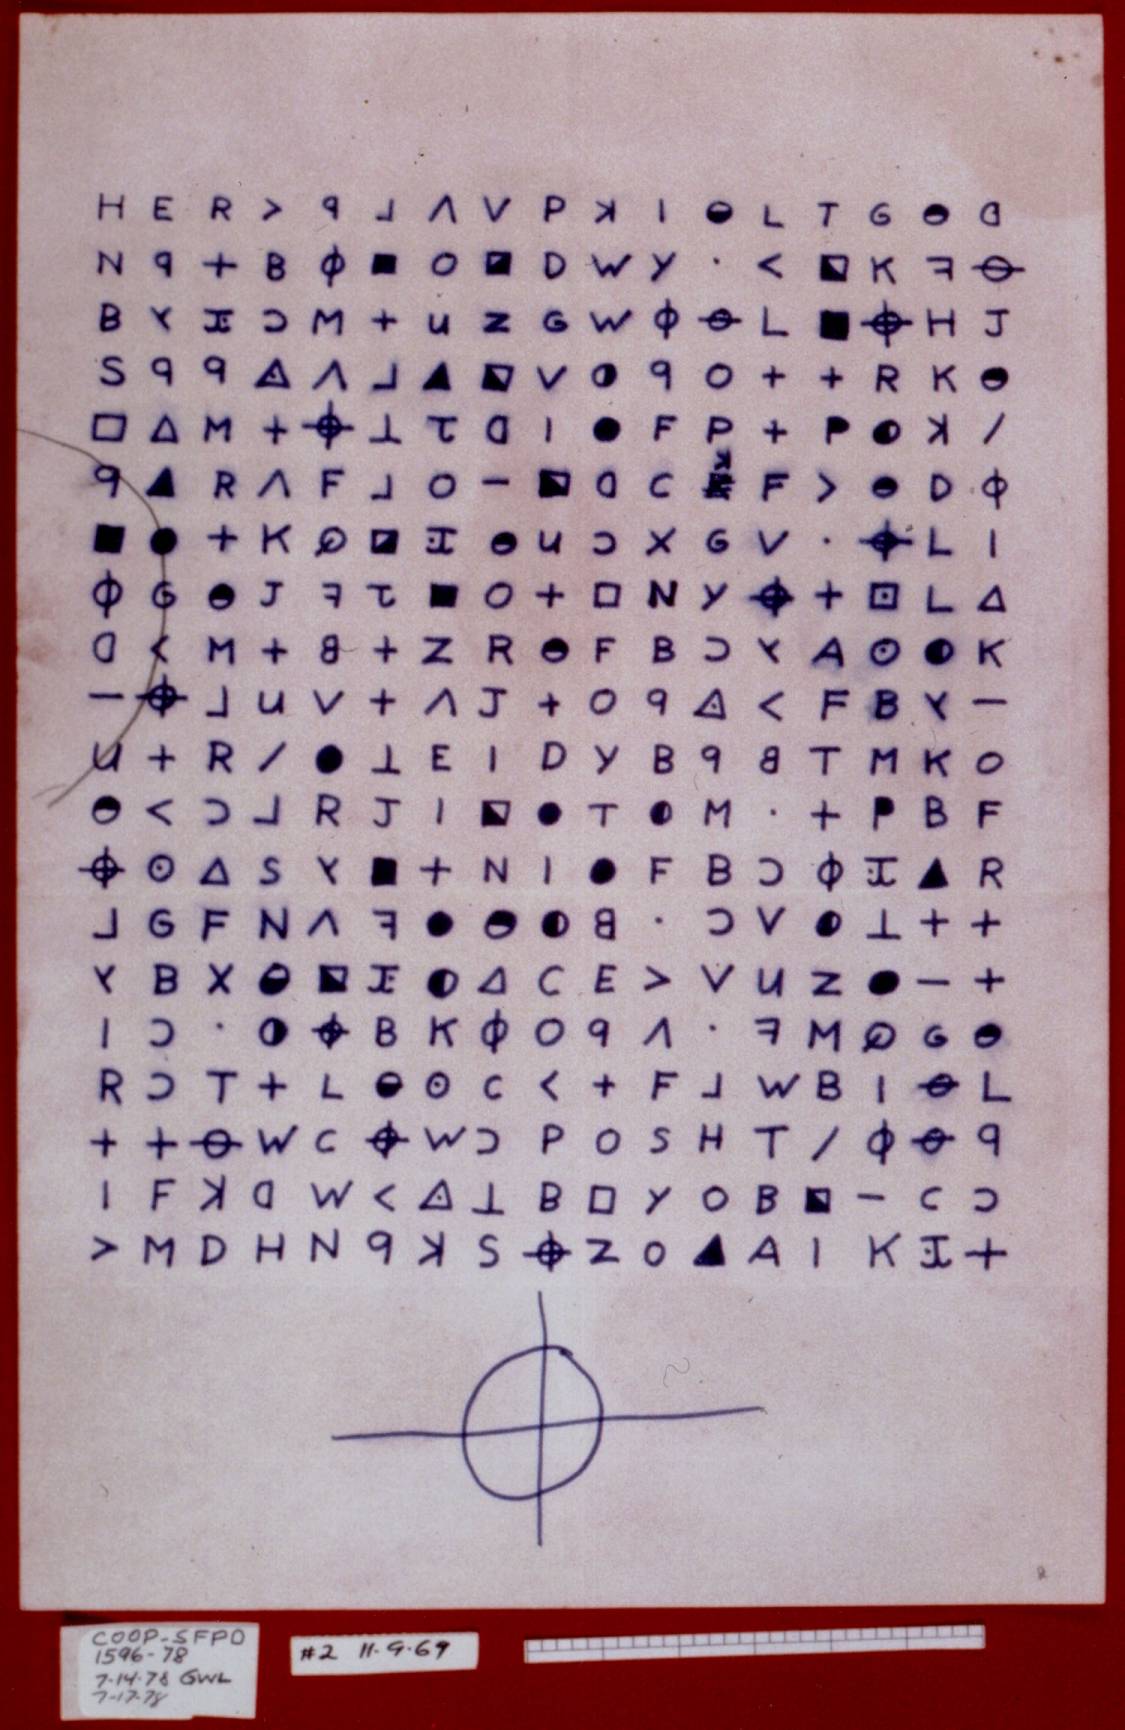 H E R > ꟼ ⅃ Λ V P ꓘ I ◒ L T G ◒ ᗡ
N ꟼ + B ϕ ■ O ◪ D W Y · < ◣ K ꟻ ⊖
B ⅄ Ɪ Ɔ M + U Z G W ϕ ⊖ L ■ ⌖ H J
S ꟼ ꟼ ◬ Λ ⅃ ▲ ◣ V ◑ ꟼ O + + R K ◒
□ △ M + ⌖ ⊥ τ ᗡ I ● F P + P ◐ ꓘ /
ꟼ ▲ R Λ F ⅃ O - ◣ ᗡ C ꓘ F > ◒ D ϕ
■ ● + K ∅ ◪ Ɪ ◒ U Ɔ X G V · ⌖ L I
ϕ G ◒ J ꟻ τ ■ O + □ N Y ⌖ + ⊡ L △
ᗡ < M + 8 + Z R ◒ F B Ɔ ⅄ A ⊙ ◑ K
- ⌖ ⅃ U V + Λ J + O ꟼ ◬ < F B ⅄ -
U + R / ● ⊥ E I D Y B ꟼ 8 T M K O
◒ < Ɔ ⅃ R J I ◣ ● T ◐ M · + P B F
⌖ ⊙ △ S ⅄ ■ + N I ● F B Ɔ ϕ Ɪ ▲ R
⅃ G F N Λ ꟻ ● ◒ ◑ 8 · Ɔ V ◐ ⊥ + +
⅄ B X ◒ ◣ Ɪ ◐ △ C E > V U Z ● - +
I Ɔ · ◑ ⌖ B K ϕ O ꟼ Λ · ꟻ M ∅ G ◒
R Ɔ T + L ◒ ⊙ C < + F ⅃ W B I ⊖ L
+ + ⊖ W C ⌖ W Ɔ P O S H T / ϕ ⊖ ꟼ
I F ꓘ ᗡ W < ◬ ⊥ B □ Y O B ◣ - C Ɔ
> M D H N ꟼ ꓘ S ⌖ Z O ▲ A I K Ɪ +
COOP-SFPD
1596-78
7-14-78 GWL
7-17-78
#2 11-9-69